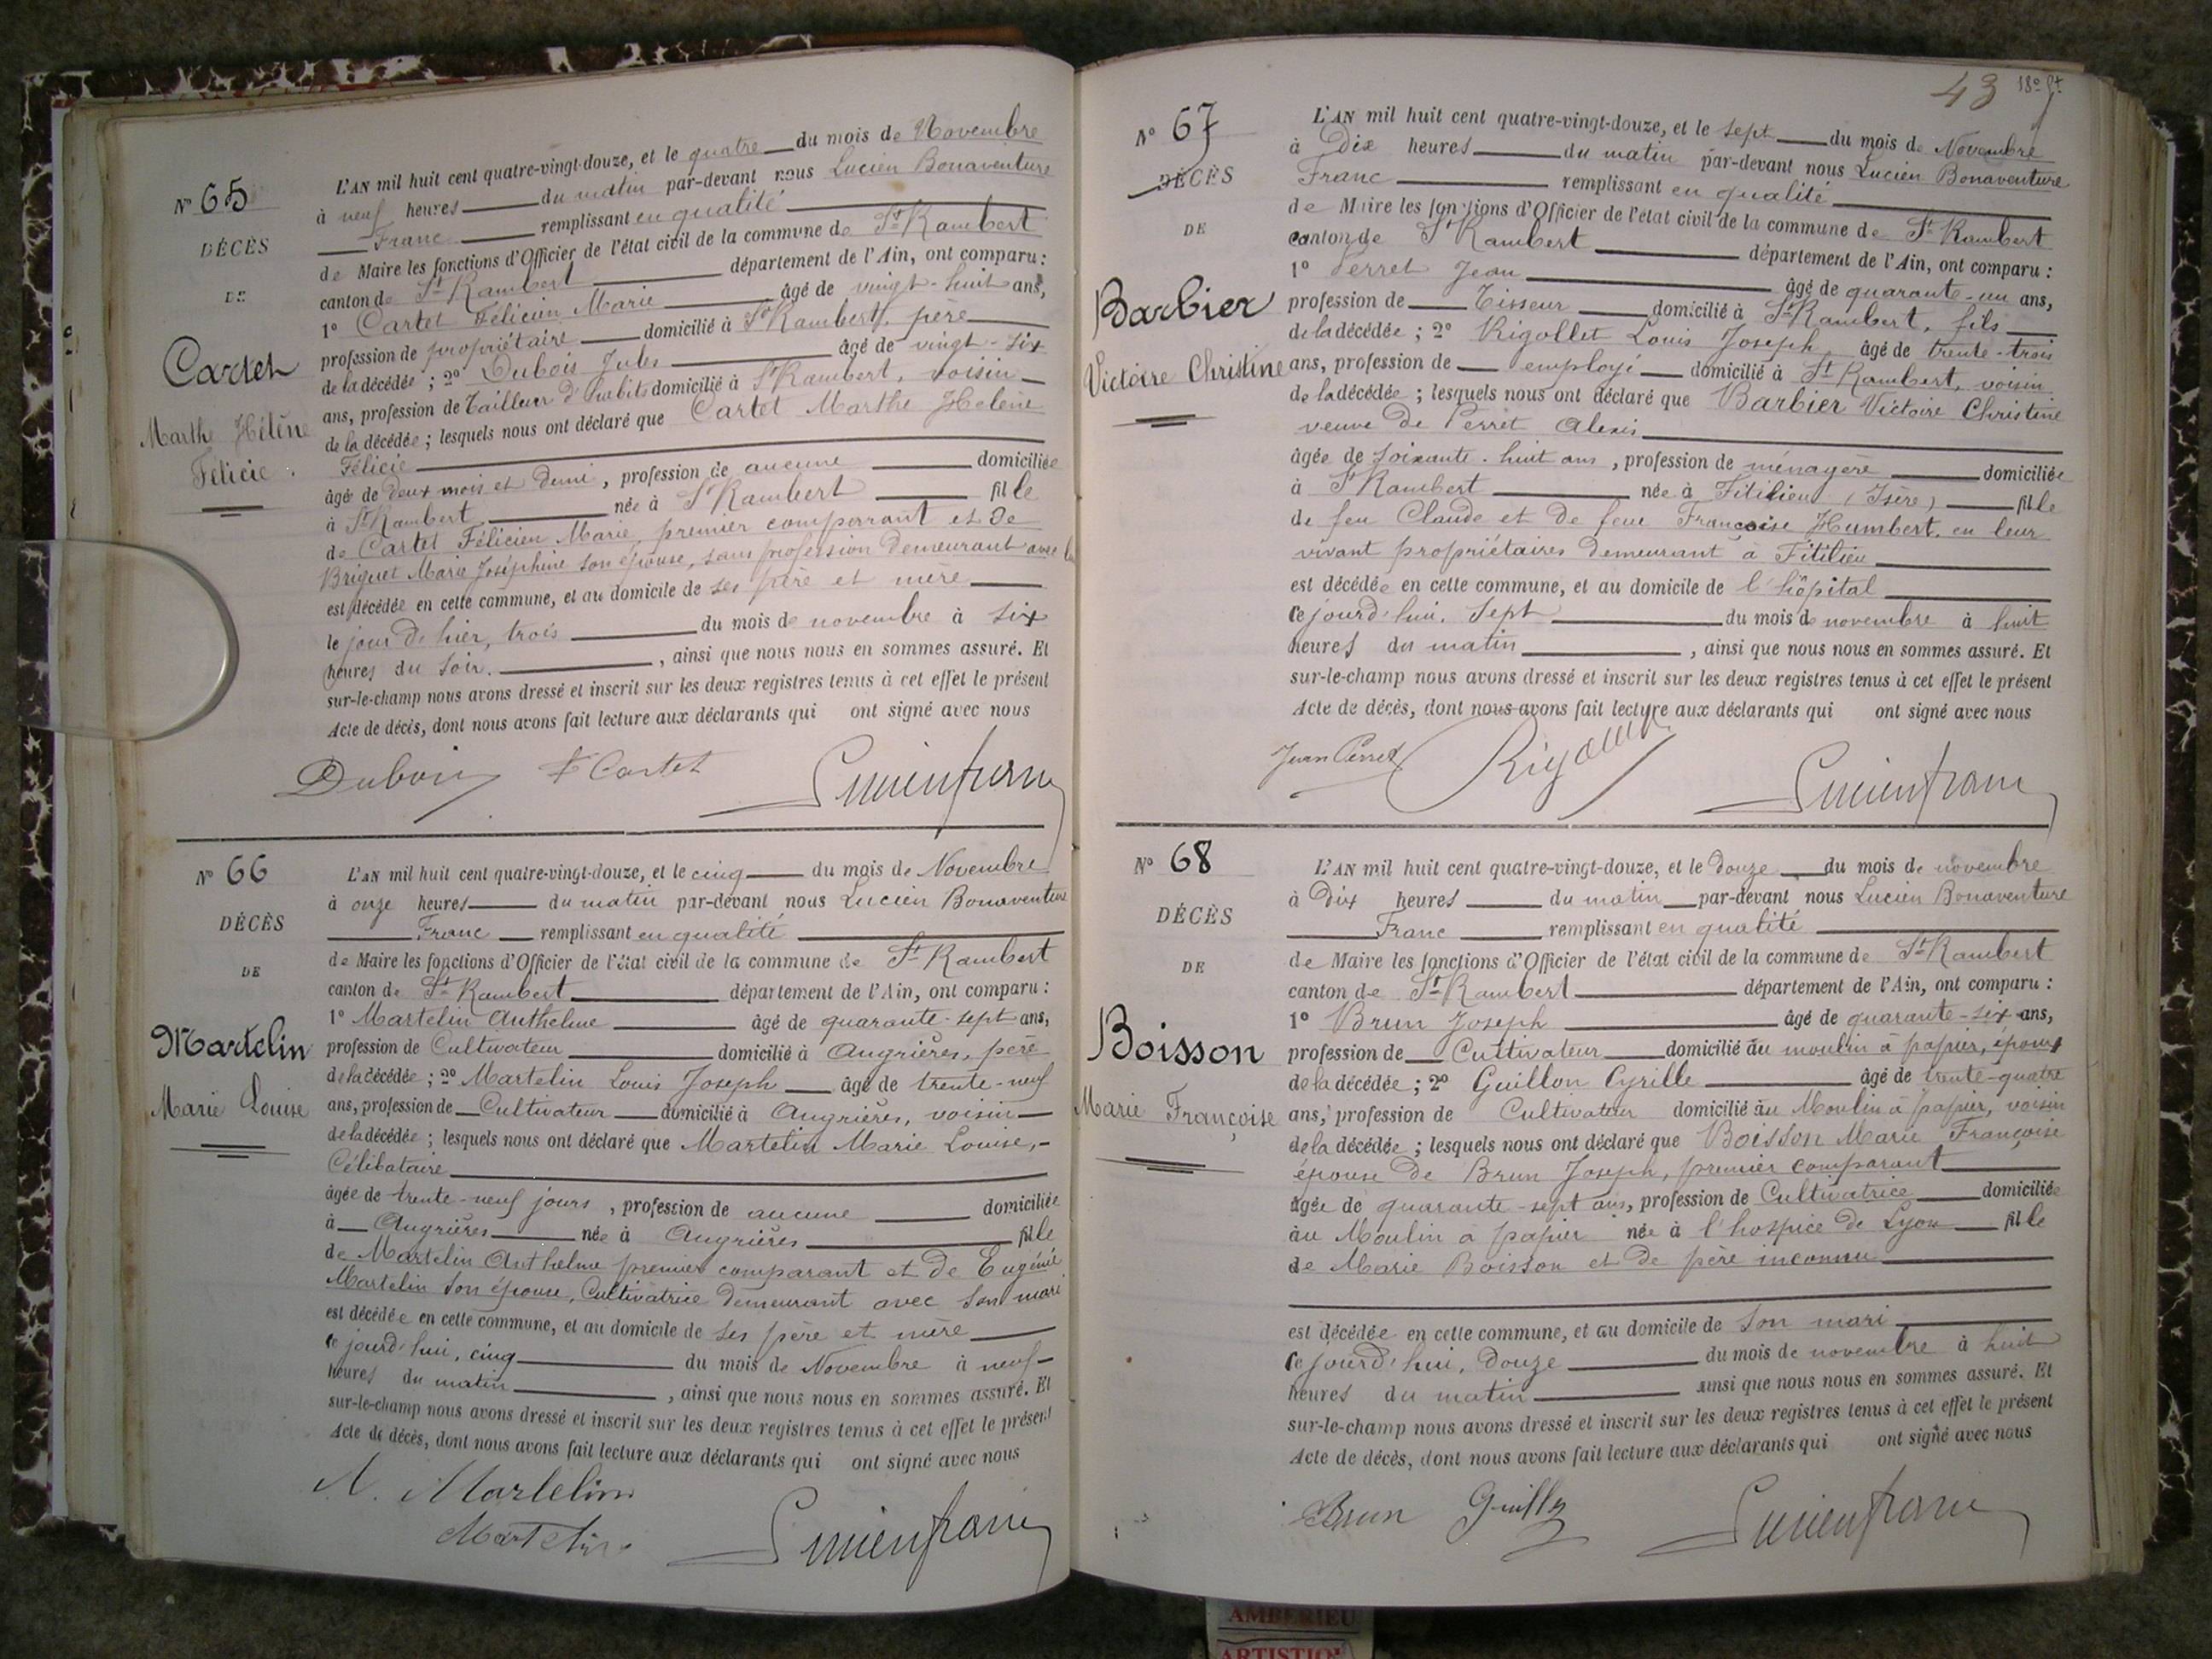 N° 65
DÉCÈS
DE
Cartet
Marthe Hélène
Félicie.
L'AN mil huit cent quatre-vingt-douze, et le quatre du mois de Novembre
à neuf heures du matin par-devant nous Lucien Bonaventure
Franc remplissant en qualité
de Maire les fonctions d'Officier de l'état civil de la commune de St Rambert
canton de St Rambert département de l'Ain, ont comparu :
1° Cartet Félicien Marie âgé de vingt-huit ans,
profession de propriétaire domicilié à St Rambert, père
de la décédée ; 2° Dubois Jules âgé de vingt-six
ans, profession de Tailleur d'habits domicilié à St Rambert, voisin
de la décédée ; lesquels nous ont déclaré que Cartet Marthe Hélène
Félicie
âgée de deux mois et demi, profession de aucune domiciliée
à St Rambert née à St Rambert fille
de Cartet Félicien Marie, premier comparant et de
Briguet Marie Joséphine son épouse, sans profession demeurant avec lui
est décédée en cette commune, et au domicile de ses père et mère
le jour de hier, trois du mois de novembre à six
heures du soir. , ainsi que nous nous en sommes assuré. Et
sur-le-champ nous avons dressé et inscrit sur les deux registres tenus à cet effet le présent
Acte de décès, dont nous avons fait lecture aux déclarants qui ont signé avec nous
Dubois F Cartet Lucien franc
N° 66
DÉCÈS
DE
Martelin
Marie Louise
L'AN mil huit cent quatre-vingt-douze, et le cinq du mois de Novembre
à onze heures du matin par-devant nous Lucien Bonaventure
Franc remplissant en qualité
de Maire les fonctions d'Officier de l'état civil de la commune de St Rambert
canton de St Rambert département de l'Ain, ont comparu :
1° Martelin Anthelme âgé de quarante-sept ans,
profession de Cultivateur domicilié à Angrières, père
de la décédée ; 2° Martelin Louis Joseph âgé de trente-neuf
ans, profession de Cultivateur domicilié à Angrières, voisin
de la décédée ; lesquels nous ont déclaré que Martelin Marie Louise,
Célibataire
âgée de trente-neuf jours, profession de aucune domiciliée
à Angrières née à Angrières fille
de Martelin Anthelme premier comparant et de Eugénie
Martelin son épouse, Cultivatrice demeurant avec son mari
est décédée en cette commune, et au domicile de ses père et mère
ce jourd'hui, cinq du mois de Novembre à neuf
heures du matin , ainsi que nous nous en sommes assuré. Et
sur-le-champ nous avons dressé et inscrit sur les deux registres tenus à cet effet le présent
Acte de décès, dont nous avons fait lecture aux déclarants qui ont signé avec nous
A. Martelin
Martelin Lucien franc
43 18e ft
N° 67
DÉCÈS
DE
Barbier
Victoire Christine
L'AN mil huit cent quatre-vingt-douze, et le sept du mois de Novembre
à Dix heures du matin par-devant nous Lucien Bonaventure
Franc remplissant en qualité
de Maire les fonctions d'Officier de l'état civil de la commune de St Rambert
canton de St Rambert département de l'Ain, ont comparu :
1° Perret Jean âgé de quarante-un ans,
profession de Tisseur domicilié à St Rambert, fils
de la décédée ; 2° Rigollet Louis Joseph âgé de trente-trois
ans, profession de employé domicilié à St Rambert, voisin
de la décédée ; lesquels nous ont déclaré que Barbier Victoire Christine
veuve de Perret Alexis
âgée de soixante-huit ans, profession de ménagère domiciliée
à St Rambert née à Fitilieu (Isère) fille
de feu Claude et de feue Françoise Humbert, en leur
vivant propriétaires demeurant à Fitilieu
est décédée en cette commune, et au domicile de l'hôpital
ce jourd'hui, Sept du mois de novembre à huit
heures du matin , ainsi que nous nous en sommes assuré. Et
sur-le-champ nous avons dressé et inscrit sur les deux registres tenus à cet effet le présent
Acte de décès, dont nous avons fait lecture aux déclarants qui ont signé avec nous
Jean Perret Lucien franc
N° 68
DÉCÈS
DE
Boisson
Marie Françoise
L'AN mil huit cent quatre-vingt-douze, et le douze du mois de novembre
à Dix heures du matin par-devant nous Lucien Bonaventure
Franc remplissant en qualité
de Maire les fonctions d'Officier de l'état civil de la commune de St Rambert
canton de St Rambert département de l'Ain, ont comparu :
1° Brun Joseph âgé de quarante-six ans,
profession de Cultivateur domicilié au moulin à papier, époux
de la décédée ; 2° Guillon Cyrille âgé de trente-quatre
ans, profession de Cultivateur domicilié au Moulin à papier, voisin
de la décédée ; lesquels nous ont déclaré que Boisson Marie Françoise
épouse de Brun Joseph, premier comparant
âgée de quarante-sept ans, profession de Cultivatrice domiciliée
au Moulin à papier née à l'hospice de Lyon fille
de Marie Boisson et de père inconnu
est décédée en cette commune, et au domicile de son mari
ce jourd'hui, Douze du mois de novembre à huit
heures du matin ainsi que nous nous en sommes assuré. Et
sur-le-champ nous avons dressé et inscrit sur les deux registres tenus à cet effet le présent
Acte de décès, dont nous avons fait lecture aux déclarants qui ont signé avec nous
Brun Lucien franc
AMBERIEU